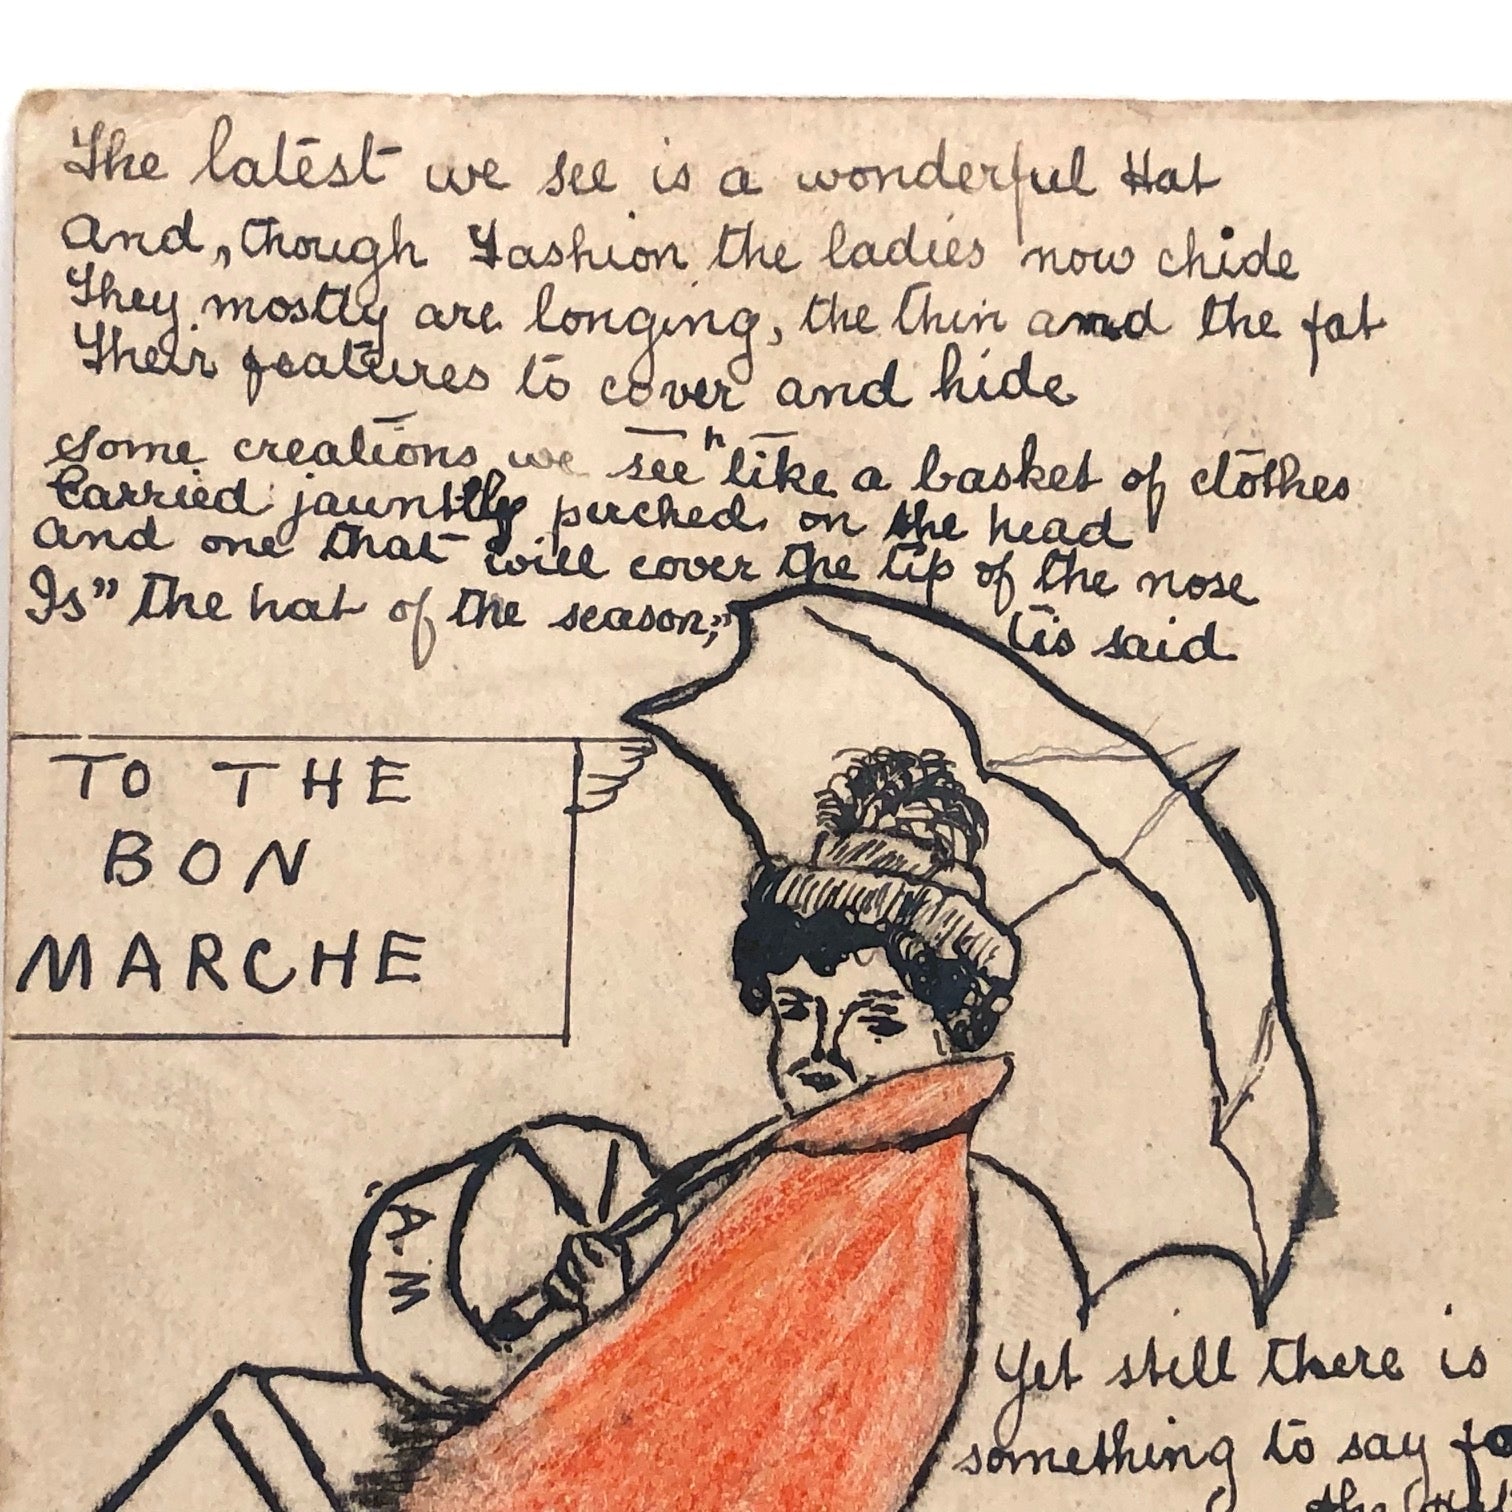 The latest we see is a wonderful Hat
And, though Fashion the ladies now chide
They mostly are longing, the thin and the fat
Their features to cover and hide
Some creations we see "like a basket of clothes
Carried jauntily perched on the head
And one that will cover the tip of the nose
Is "the hat of the season," tis said
TO THE
BON
MARCHE
A-M
Yet still there is
something to say
the